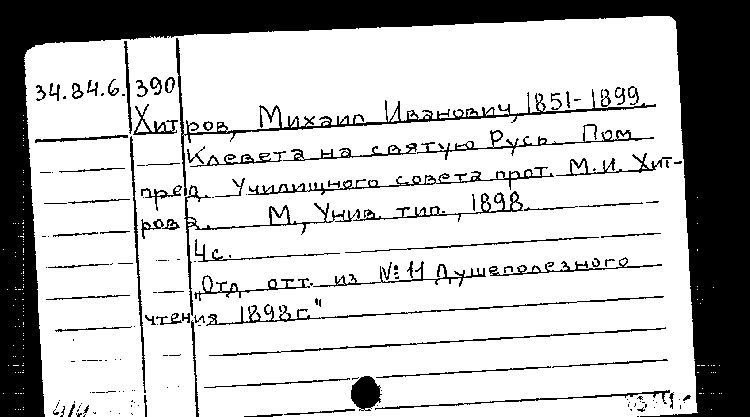 34.84.6. 390
Хитров, Михаил Иванович, 1851-1899.
Клевета на святую Русь. Пом.
пред. Училищного совета прот. М.И. Хит-
рова. М., Унив. тип., 1898.
4с.
"Отд. отт. из №11 Душеполезного
чтения 1898г."